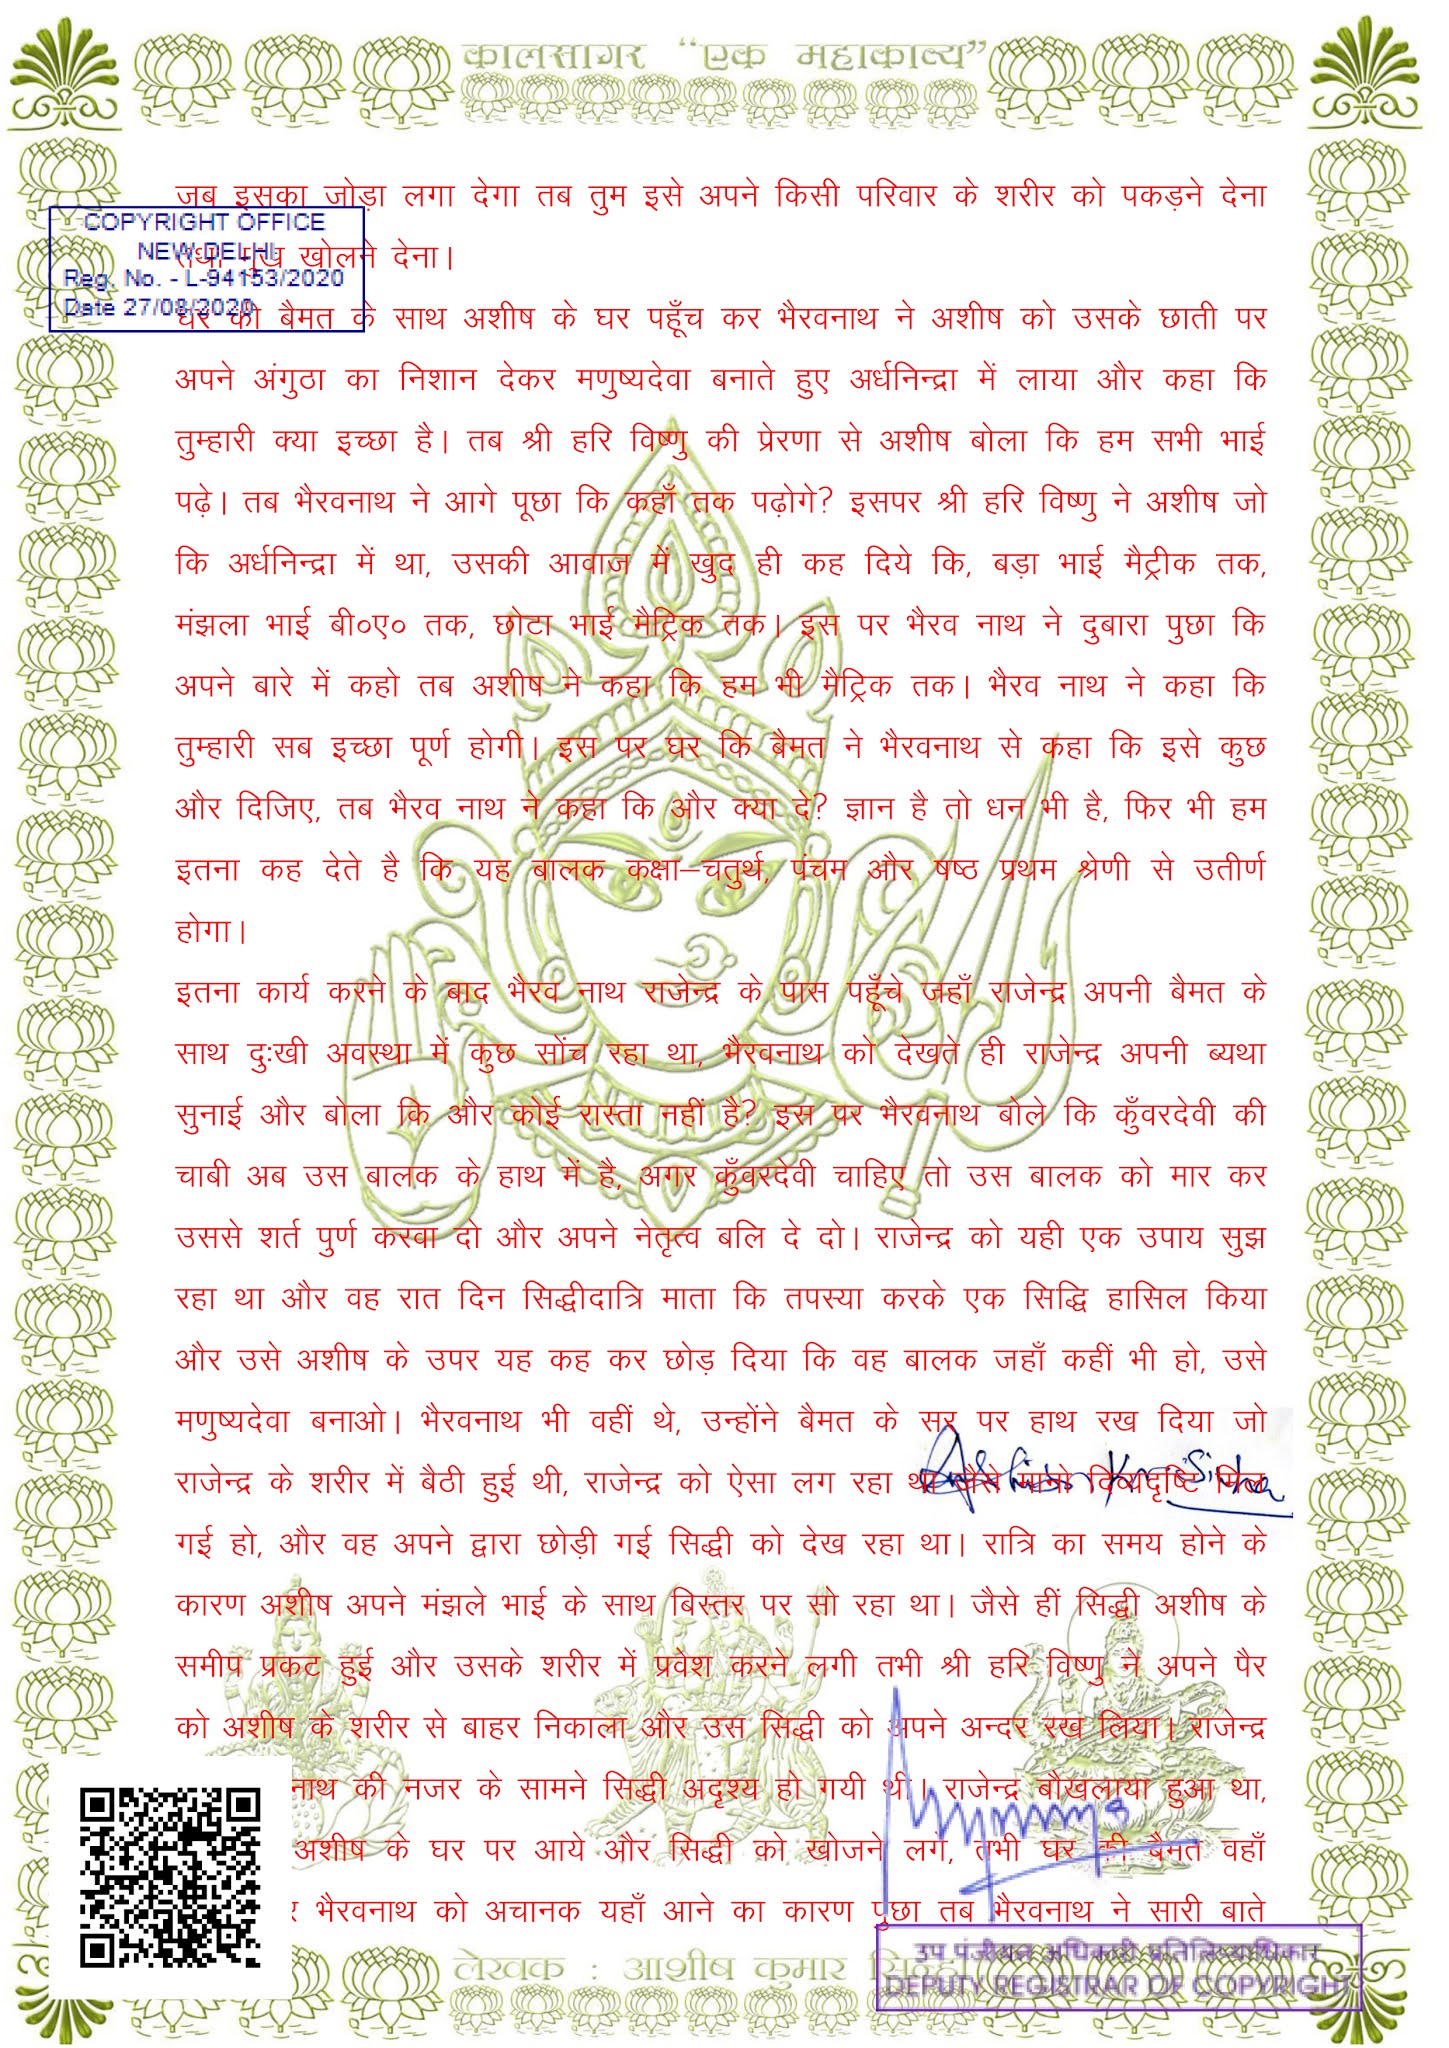 कालसागर “एक महाकाव्य”
जब इसका जोड़ा लगा देगा तब तुम इसे अपने किसी परिवार के शरीर को पकड़ने देना
COPYRIGHT OFFICE
NEW DELHI
तथा मुख खोलने देना।
Reg. No. - L-94153/2020
Date 27/08/2020
घर की बैमत के साथ अशीष के घर पहुँच कर भैरवनाथ ने अशीष को उसके छाती पर
अपने अंगुठा का निशान देकर मणुष्यदेवा बनाते हुए अर्धनिन्द्रा में लाया और कहा कि
तुम्हारी क्या इच्छा है। तब श्री हरि विष्णु की प्रेरणा से अशीष बोला कि हम सभी भाई
पढ़े। तब भैरवनाथ ने आगे पूछा कि कहाँ तक पढ़ोगे? इसपर श्री हरि विष्णु ने अशीष जो
कि अर्धनिन्द्रा में था, उसकी आवाज में खुद ही कह दिये कि, बड़ा भाई मैट्रीक तक,
मंझला भाई बी०ए० तक, छोटा भाई मैट्रिक तक। इस पर भैरव नाथ ने दुबारा पुछा कि
अपने बारे में कहो तब अशीष ने कहा कि हम भी मैट्रिक तक। भैरव नाथ ने कहा कि
तुम्हारी सब इच्छा पूर्ण होगी। इस पर घर कि बैमत ने भैरवनाथ से कहा कि इसे कुछ
और दिजिए, तब भैरव नाथ ने कहा कि और क्या दे? ज्ञान है तो धन भी है, फिर भी हम
इतना कह देते है कि यह बालक कक्षा–चतुर्थ, पंचम और षष्ठ प्रथम श्रेणी से उतीर्ण
होगा।
इतना कार्य करने के बाद भैरव नाथ राजेन्द्र के पास पहुँचे जहाँ राजेन्द्र अपनी बैमत के
साथ दुःखी अवस्था में कुछ सोंच रहा था, भैरवनाथ को देखते ही राजेन्द्र अपनी ब्यथा
सुनाई और बोला कि और कोई रास्ता नहीं है? इस पर भैरवनाथ बोले कि कुँवरदेवी की
चाबी अब उस बालक के हाथ में है, अगर कुँवरदेवी चाहिए तो उस बालक को मार कर
उससे शर्त पुर्ण करवा दो और अपने नेतृत्व बलि दे दो। राजेन्द्र को यही एक उपाय सुझ
रहा था और वह रात दिन सिद्धीदात्रि माता कि तपस्या करके एक सिद्धि हासिल किया
और उसे अशीष के उपर यह कह कर छोड़ दिया कि वह बालक जहाँ कहीं भी हो, उसे
मणुष्यदेवा बनाओ। भैरवनाथ भी वहीं थे, उन्होंने बैमत के सर पर हाथ रख दिया जो
राजेन्द्र के शरीर में बैठी हुई थी, राजेन्द्र को ऐसा लग रहा था जैसे मानो दिव्यदृष्टि मिल
गई हो, और वह अपने द्वारा छोड़ी गई सिद्धी को देख रहा था। रात्रि का समय होने के
कारण अशीष अपने मंझले भाई के साथ बिस्तर पर सो रहा था। जैसे हीं सिद्धी अशीष के
समीप प्रकट हुई और उसके शरीर में प्रवेश करने लगी तभी श्री हरि विष्णु ने अपने पैर
को अशीष के शरीर से बाहर निकाला और उस सिद्धी को अपने अन्दर रख लिया। राजेन्द्र
नाथ की नजर के सामने सिद्धी अदृश्य हो गयी थी। राजेन्द्र बौखलाया हुआ था,
अशीष के घर पर आये और सिद्धी को खोजने लगे, तभी घर की बैमत वहाँ
भैरवनाथ को अचानक यहाँ आने का कारण पुछा तब भैरवनाथ ने सारी बाते
उप पंजीयन अधिकारी प्रतिलिप्याधिकार
लेखक : आशीष कुमार सिन्हा
DEPUTY REGISTRAR OF COPYRIGHT